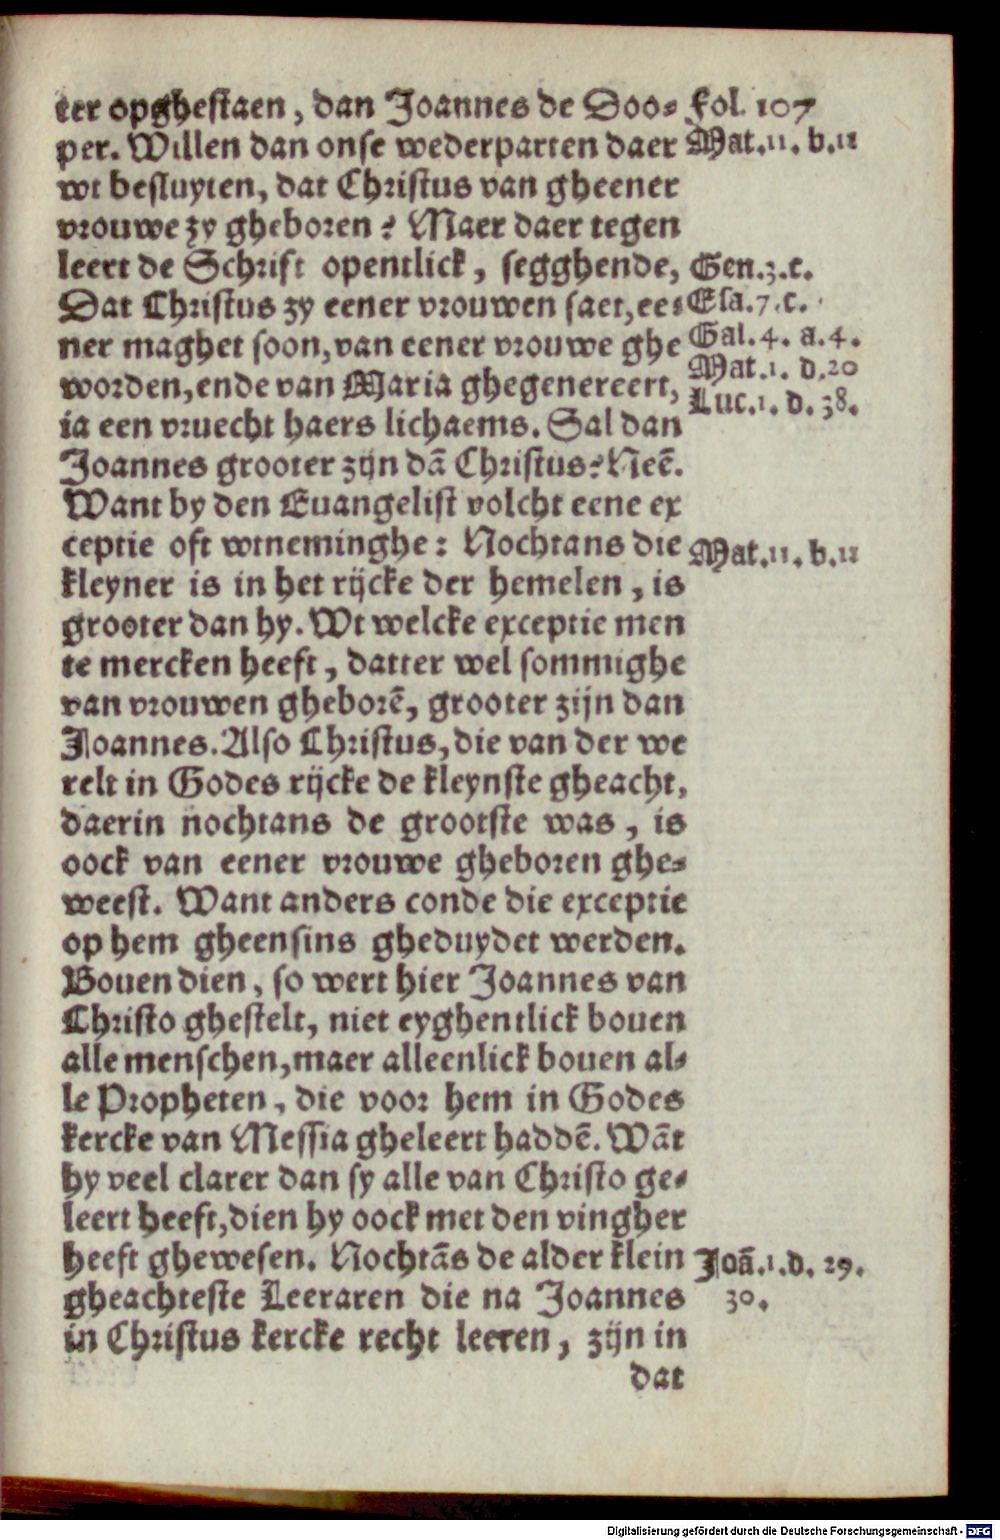 ter opghestaen, dan Joannes de Doo- Fol. 107
per. Willen dan onse wederparten daer Mat.11. b.11
wt besluyten, dat Christus van gheener
vrouwe zy gheboren? Maer daer tegen
leert de Schrift opentlick, segghende, Gen.3.c.
Dat Christus zy eener vrouwen saet, ee- Esa.7.c.
ner maghet soon, van eener vrouwe ghe Gal.4. a.4.
worden, ende van Maria ghegenereert, Mat.1. d.20
ia een vruecht haers lichaems. Sal dan Luc.1. d.38.
Joannes grooter zijn dã Christus? Neẽ.
Want by den Euangelist volcht eene ex
ceptie oft wtneminghe: Nochtans die Mat.11. b.11
kleyner is in het rijcke der hemelen, is
grooter dan hy. Wt welcke exceptie men
te mercken heeft, datter wel sommighe
van vrouwen gheborẽ, grooter zijn dan
Joannes. Also Christus, die van der we
relt in Godes rijcke de kleynste gheacht,
daerin nochtans de grootste was, is
oock van eener vrouwe gheboren ghe-
weest. Want anders conde die exceptie
op hem gheensins gheduydet werden.
Bouen dien, so wert hier Joannes van
Christo ghestelt, niet eyghentlick bouen
alle menschen, maer alleenlick bouen al-
le Propheten, die voor hem in Godes
kercke van Messia gheleert haddẽ. Wãt
hy veel clarer dan sy alle van Christo ge-
leert heeft, dien hy oock met den vingher
heeft ghewesen. Nochtãs de alder klein Joã.1.d. 29.
gheachteste Leeraren die na Joannes 30.
in Christus kercke recht leeren, zijn in
dat
Digitalisierung gefördert durch die Deutsche Forschungsgemeinschaft - DFG